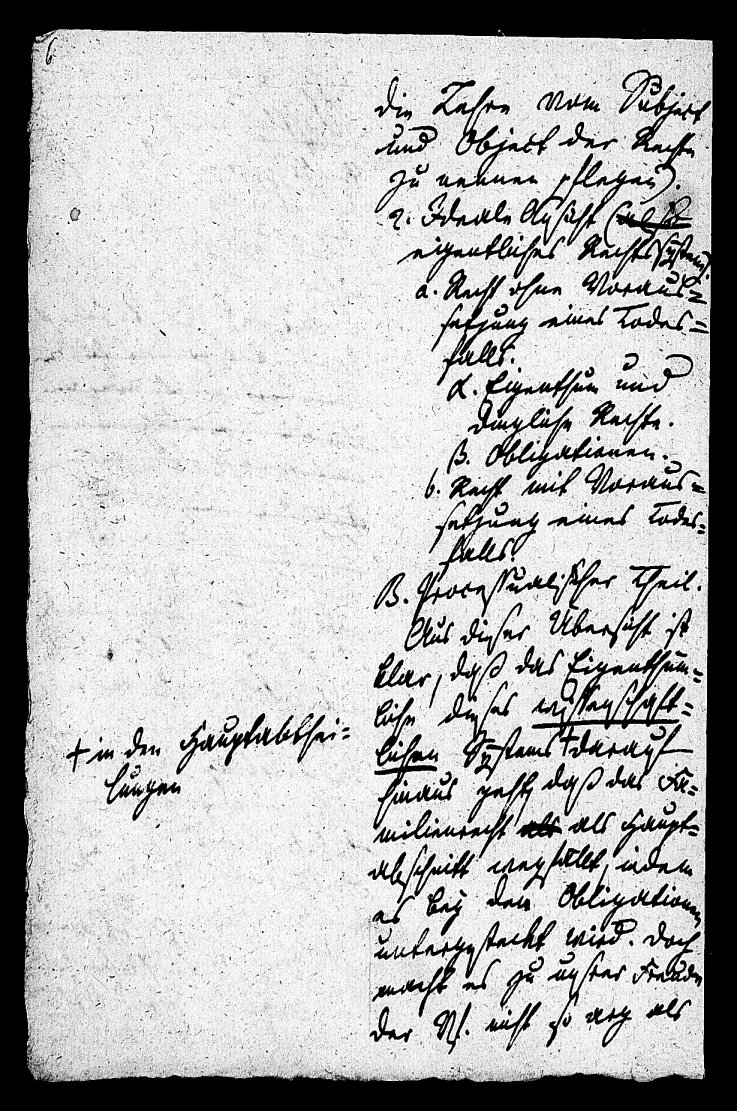 6
die Lehre vom Subject
und Object der Rechte
zu nennen pflegen).
2. Ideale Ansicht (also
eigentliches Rechtssystem).
a. Recht ohne Voraus=
setzung eines Todes=
falls.
α. Eigenthum und
dingliche Rechte.
β. Obligationen.
b. Recht mit Voraus=
setzung eines Todes=
falls.
B. Processualischer Theil.
Aus dieser Übersicht ist
klar, daß das Eigenthüm=
liche dieses wissenschaft=
lichen Systems † darauf
hinaus geht, daß das Fa=
milienrecht als als Haupt=
abschnitt wegfällt, indem
es bey den Obligationen
untergesteckt wird. Doch
macht es zu unsrer Freude
der Vf. nicht so arg als
† in den Hauptabthei=
lungen